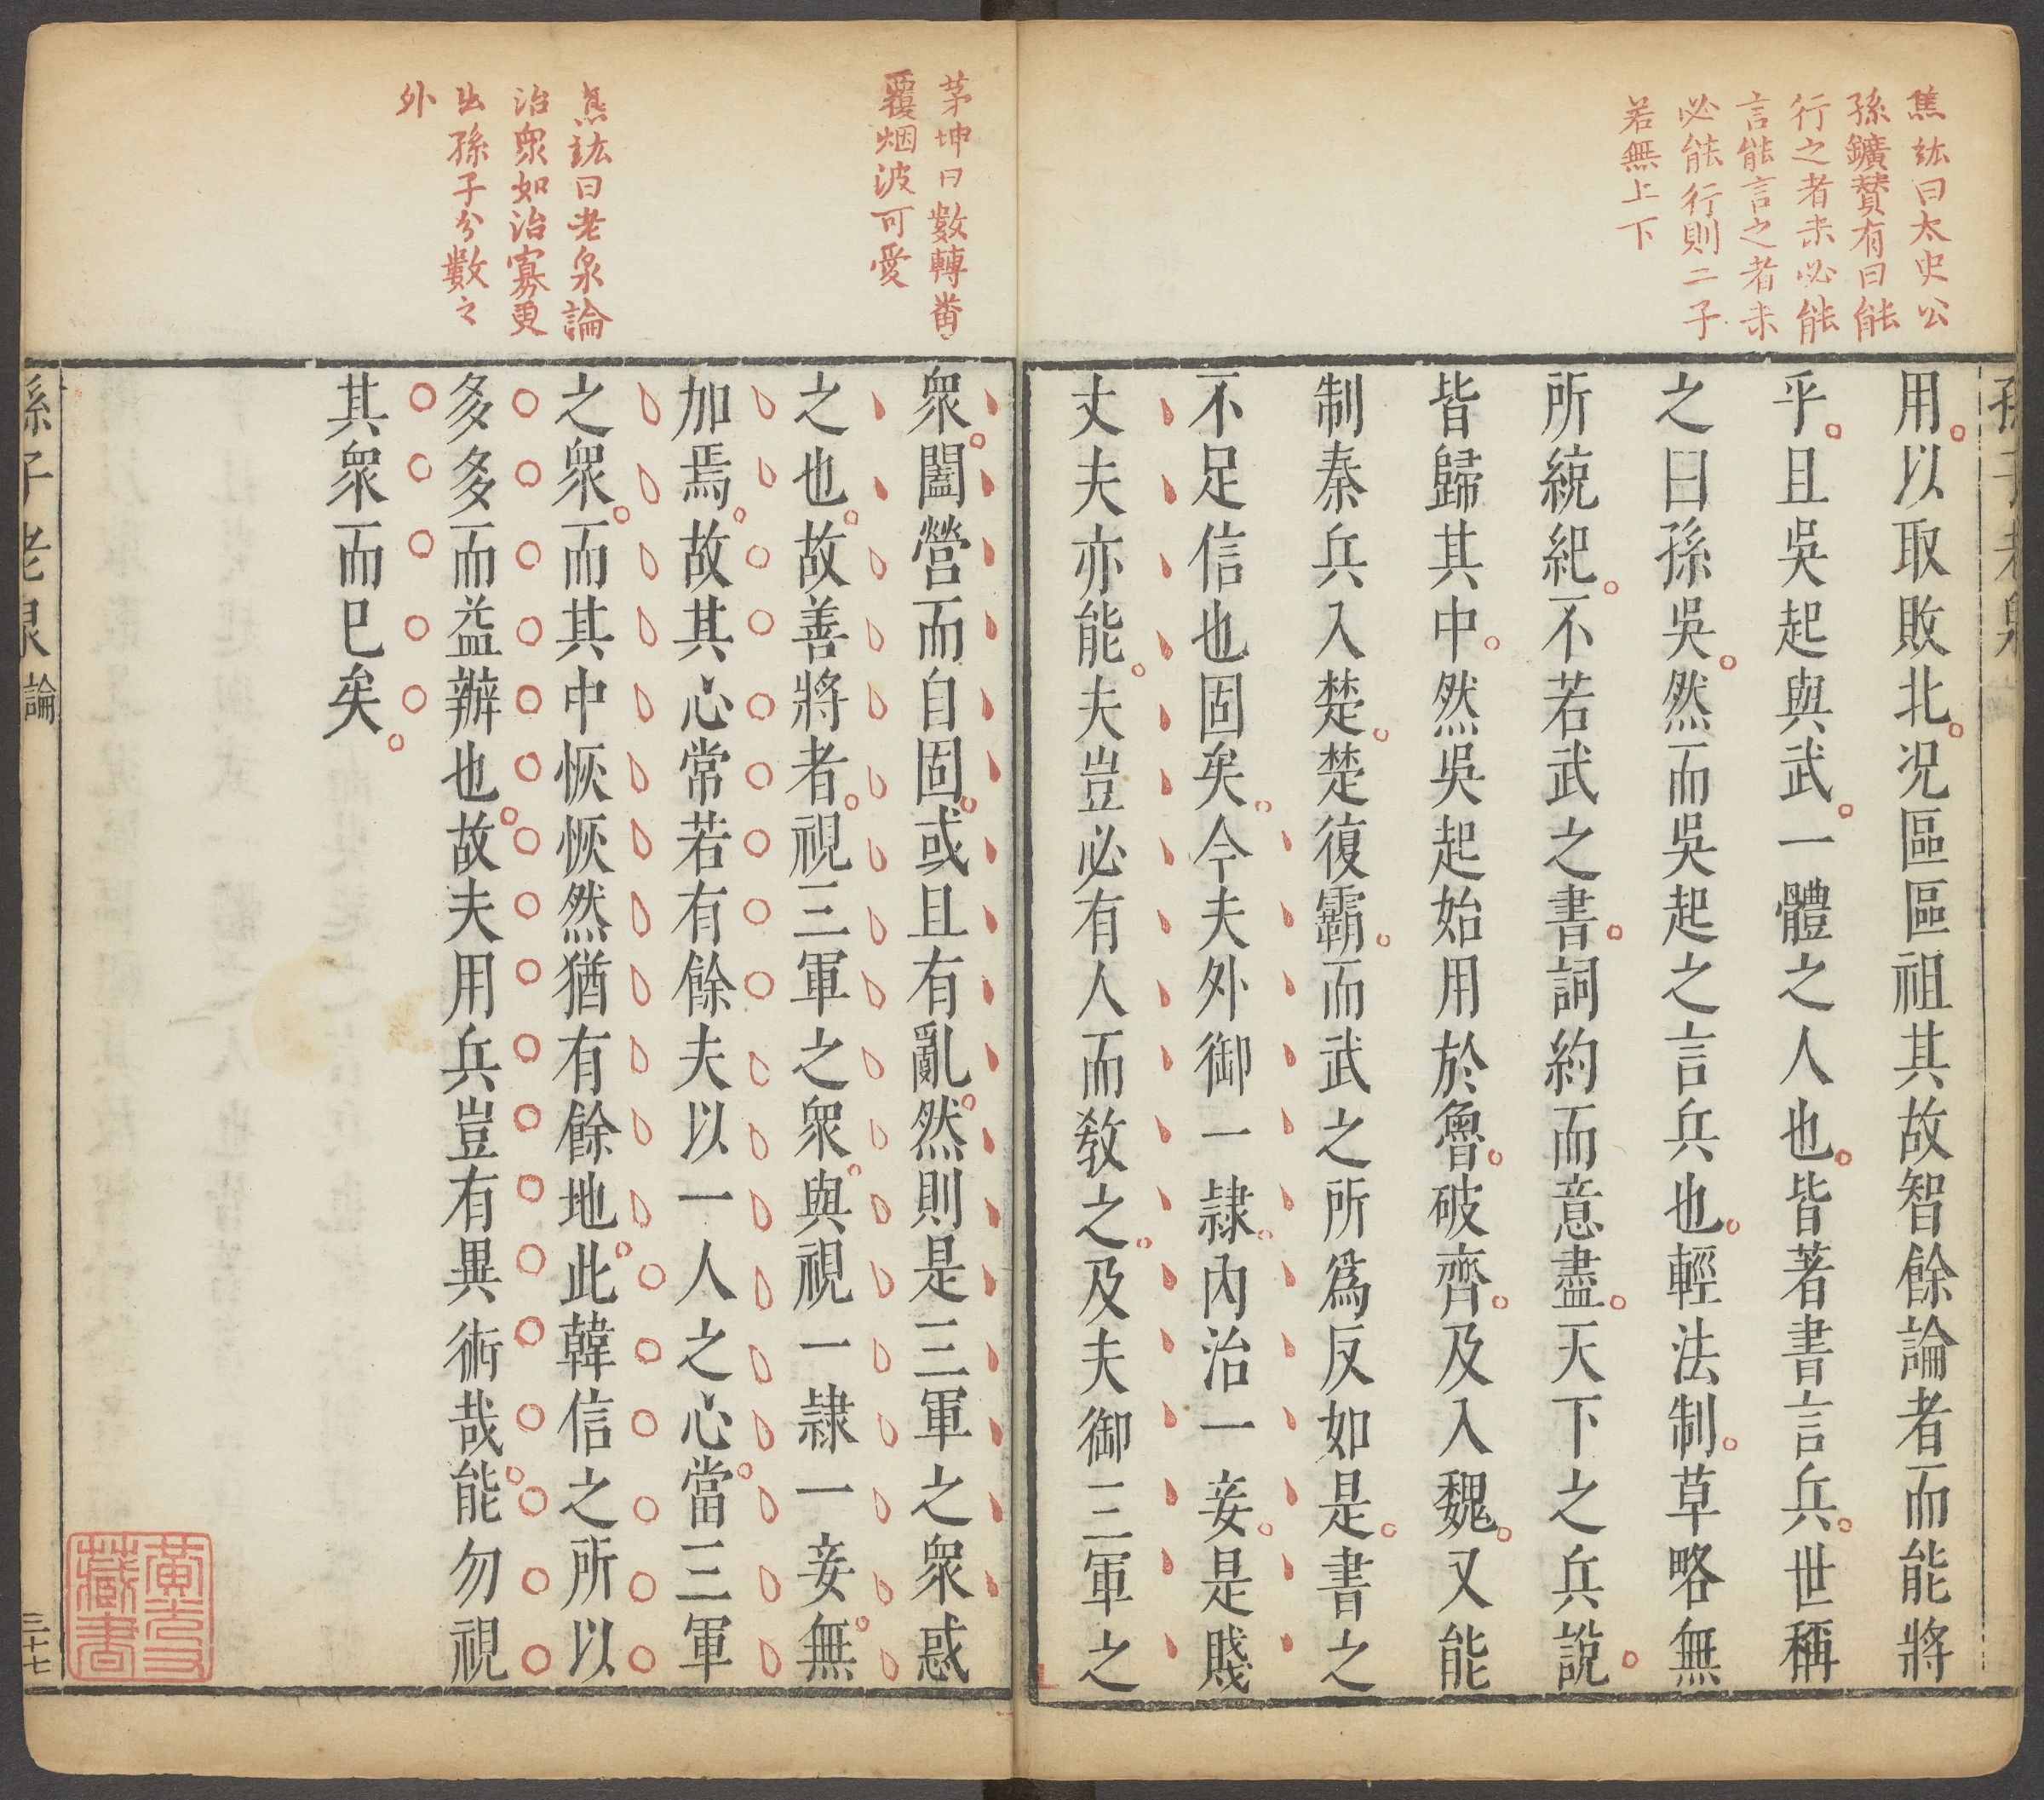 焦竑曰太史公
孫鑛贊有曰能
行之者未必能
言能言之者未
必能行則二子
若無上下
用以取敗北况區區祖其故智餘論者而能將
乎且吳起與武一體之人也皆著書言兵世稱
之曰孫吳然而吳起之言兵也輕法制草略無
所統紀不若武之書詞約而意盡天下之兵說
皆歸其中然吳起始用於魯破齊及入魏又能
制秦兵入楚楚復霸而武之所爲反如是書之
不足信也固矣今夫外御一隷內治一妾是賤
丈夫亦能夫豈必有人而敎之及夫御三軍之
茅坤曰數轉番
覆烟波可愛
焦竑曰老泉論
治衆如治寡更
出孫子分數之
外
衆闔營而自固或且有亂然則是三軍之衆惑
之也故善將者視三軍之衆與視一隷一妾無
加焉故其心常若有餘夫以一人之心當三軍
之衆而其中恢恢然猶有餘地此韓信之所以
多多而益辦也故夫用兵豈有異術哉能勿視
其衆而已矣
孫子老泉論
三十七
藏書